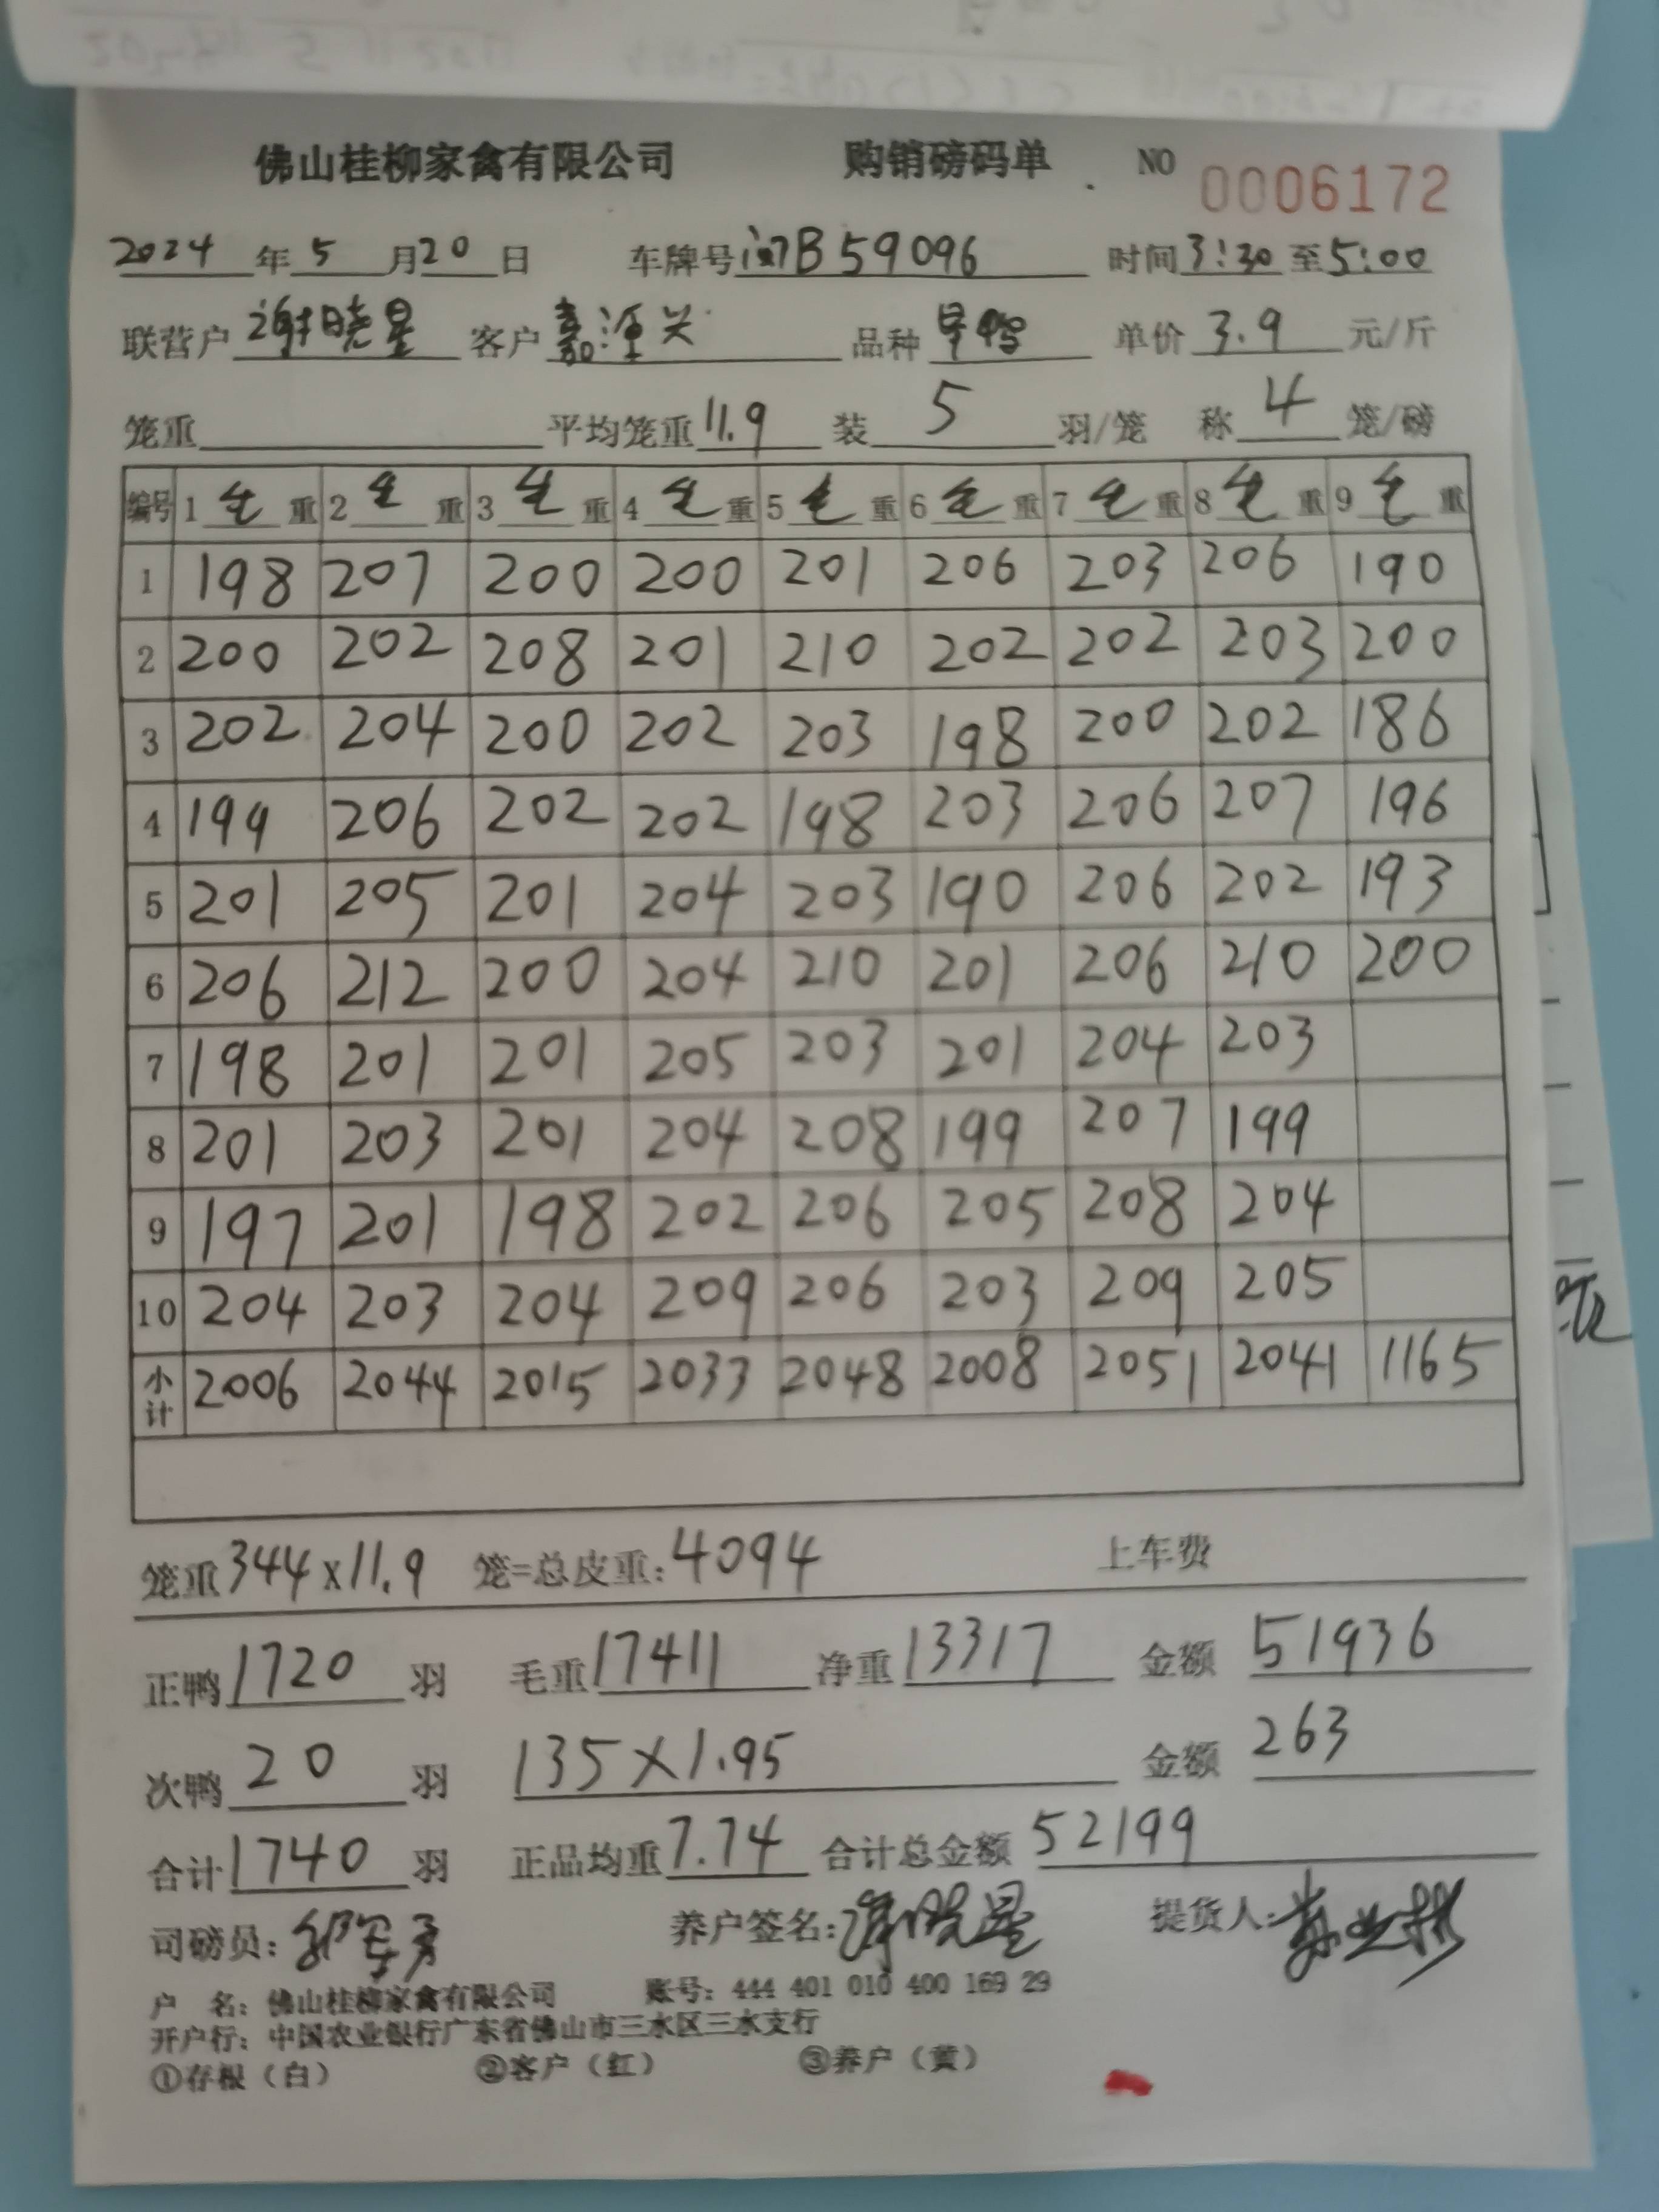 佛山桂柳家禽有限公司 购销磅码单 NO 0006172
2024年5月20日 车牌号闽B59096 时间3:30至5:00
联营户谢晓星 客户嘉潭兴 品种 单价3.9元/斤
笼重 平均笼重11.9 装5羽/笼 称4笼/磅
编号 1毛重 2毛重 3毛重 4毛重 5毛重 6毛重 7毛重 8毛重 9毛重
1 198 207 200 200 201 206 203 206 190
2 200 202 208 201 210 202 202 203 200
3 202 204 200 202 203 198 200 202 186
4 199 206 202 202 198 203 206 207 196
5 201 205 201 204 203 190 206 202 193
6 206 212 200 204 210 201 206 210 200
7 198 201 201 205 203 201 204 203
8 201 203 201 204 208 199 207 199
9 197 201 198 202 206 205 208 204
10 204 203 204 209 206 203 209 205
小计 2006 2044 2015 2033 2048 2008 2051 2041 1165
笼重344x11.9 笼=总皮重:4094 上车费
正鸭1720羽 毛重17411 净重13317 金额51936
次鸭20羽 135X1.95 金额263
合计1740羽 正品均重7.74 合计总金额52199
司磅员:邹军勇 养户签名:谢晓星 提货人:
户 名:佛山桂柳家禽有限公司 账号:444 401 010 400 169 29
开户行:中国农业银行广东省佛山市三水区三水支行
①存根(白) ②客户(红) ③养户(黄)